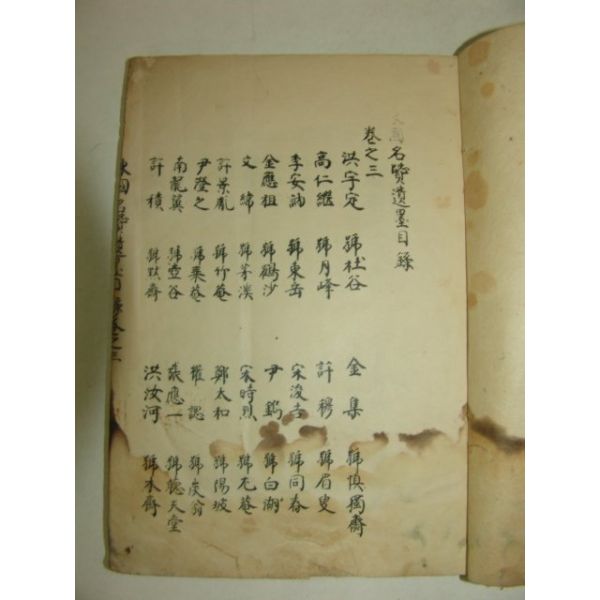 國名賢遺墨目錄
卷之三
洪宇定 號杜谷 金集 號愼獨齋
高仁繼 號月峰 許穆 號眉叟
李安訥 號東岳 宋浚吉 號同春
金應祖 號鶴沙 尹鑴 號白湖
文緯 號茅溪 宋時烈 號尤菴
許景胤 號竹菴 鄭太和 號陽坡
尹澄之 號栗菴 權諰 號炭翁
南龍翼 號壺谷 張應一 號聽天堂
許積 號默齋 洪汝河 號木齋
東國名賢遺墨目錄卷之三